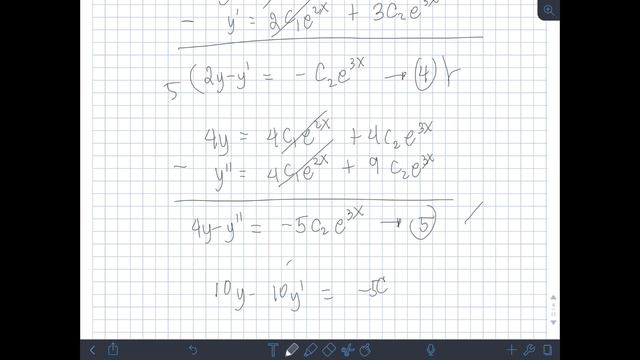 - y' = 2C₁e^{2x} + 3C₂e^{3x}
5 (2y-y' = - C₂e^{3x} → ④)
4y = 4C₁e^{2x} + 4C₂e^{3x}
- y'' = 4C₁e^{2x} + 9C₂e^{3x}
4y-y'' = -5C₂e^{3x} → ⑤
10y - 10y' = -5C